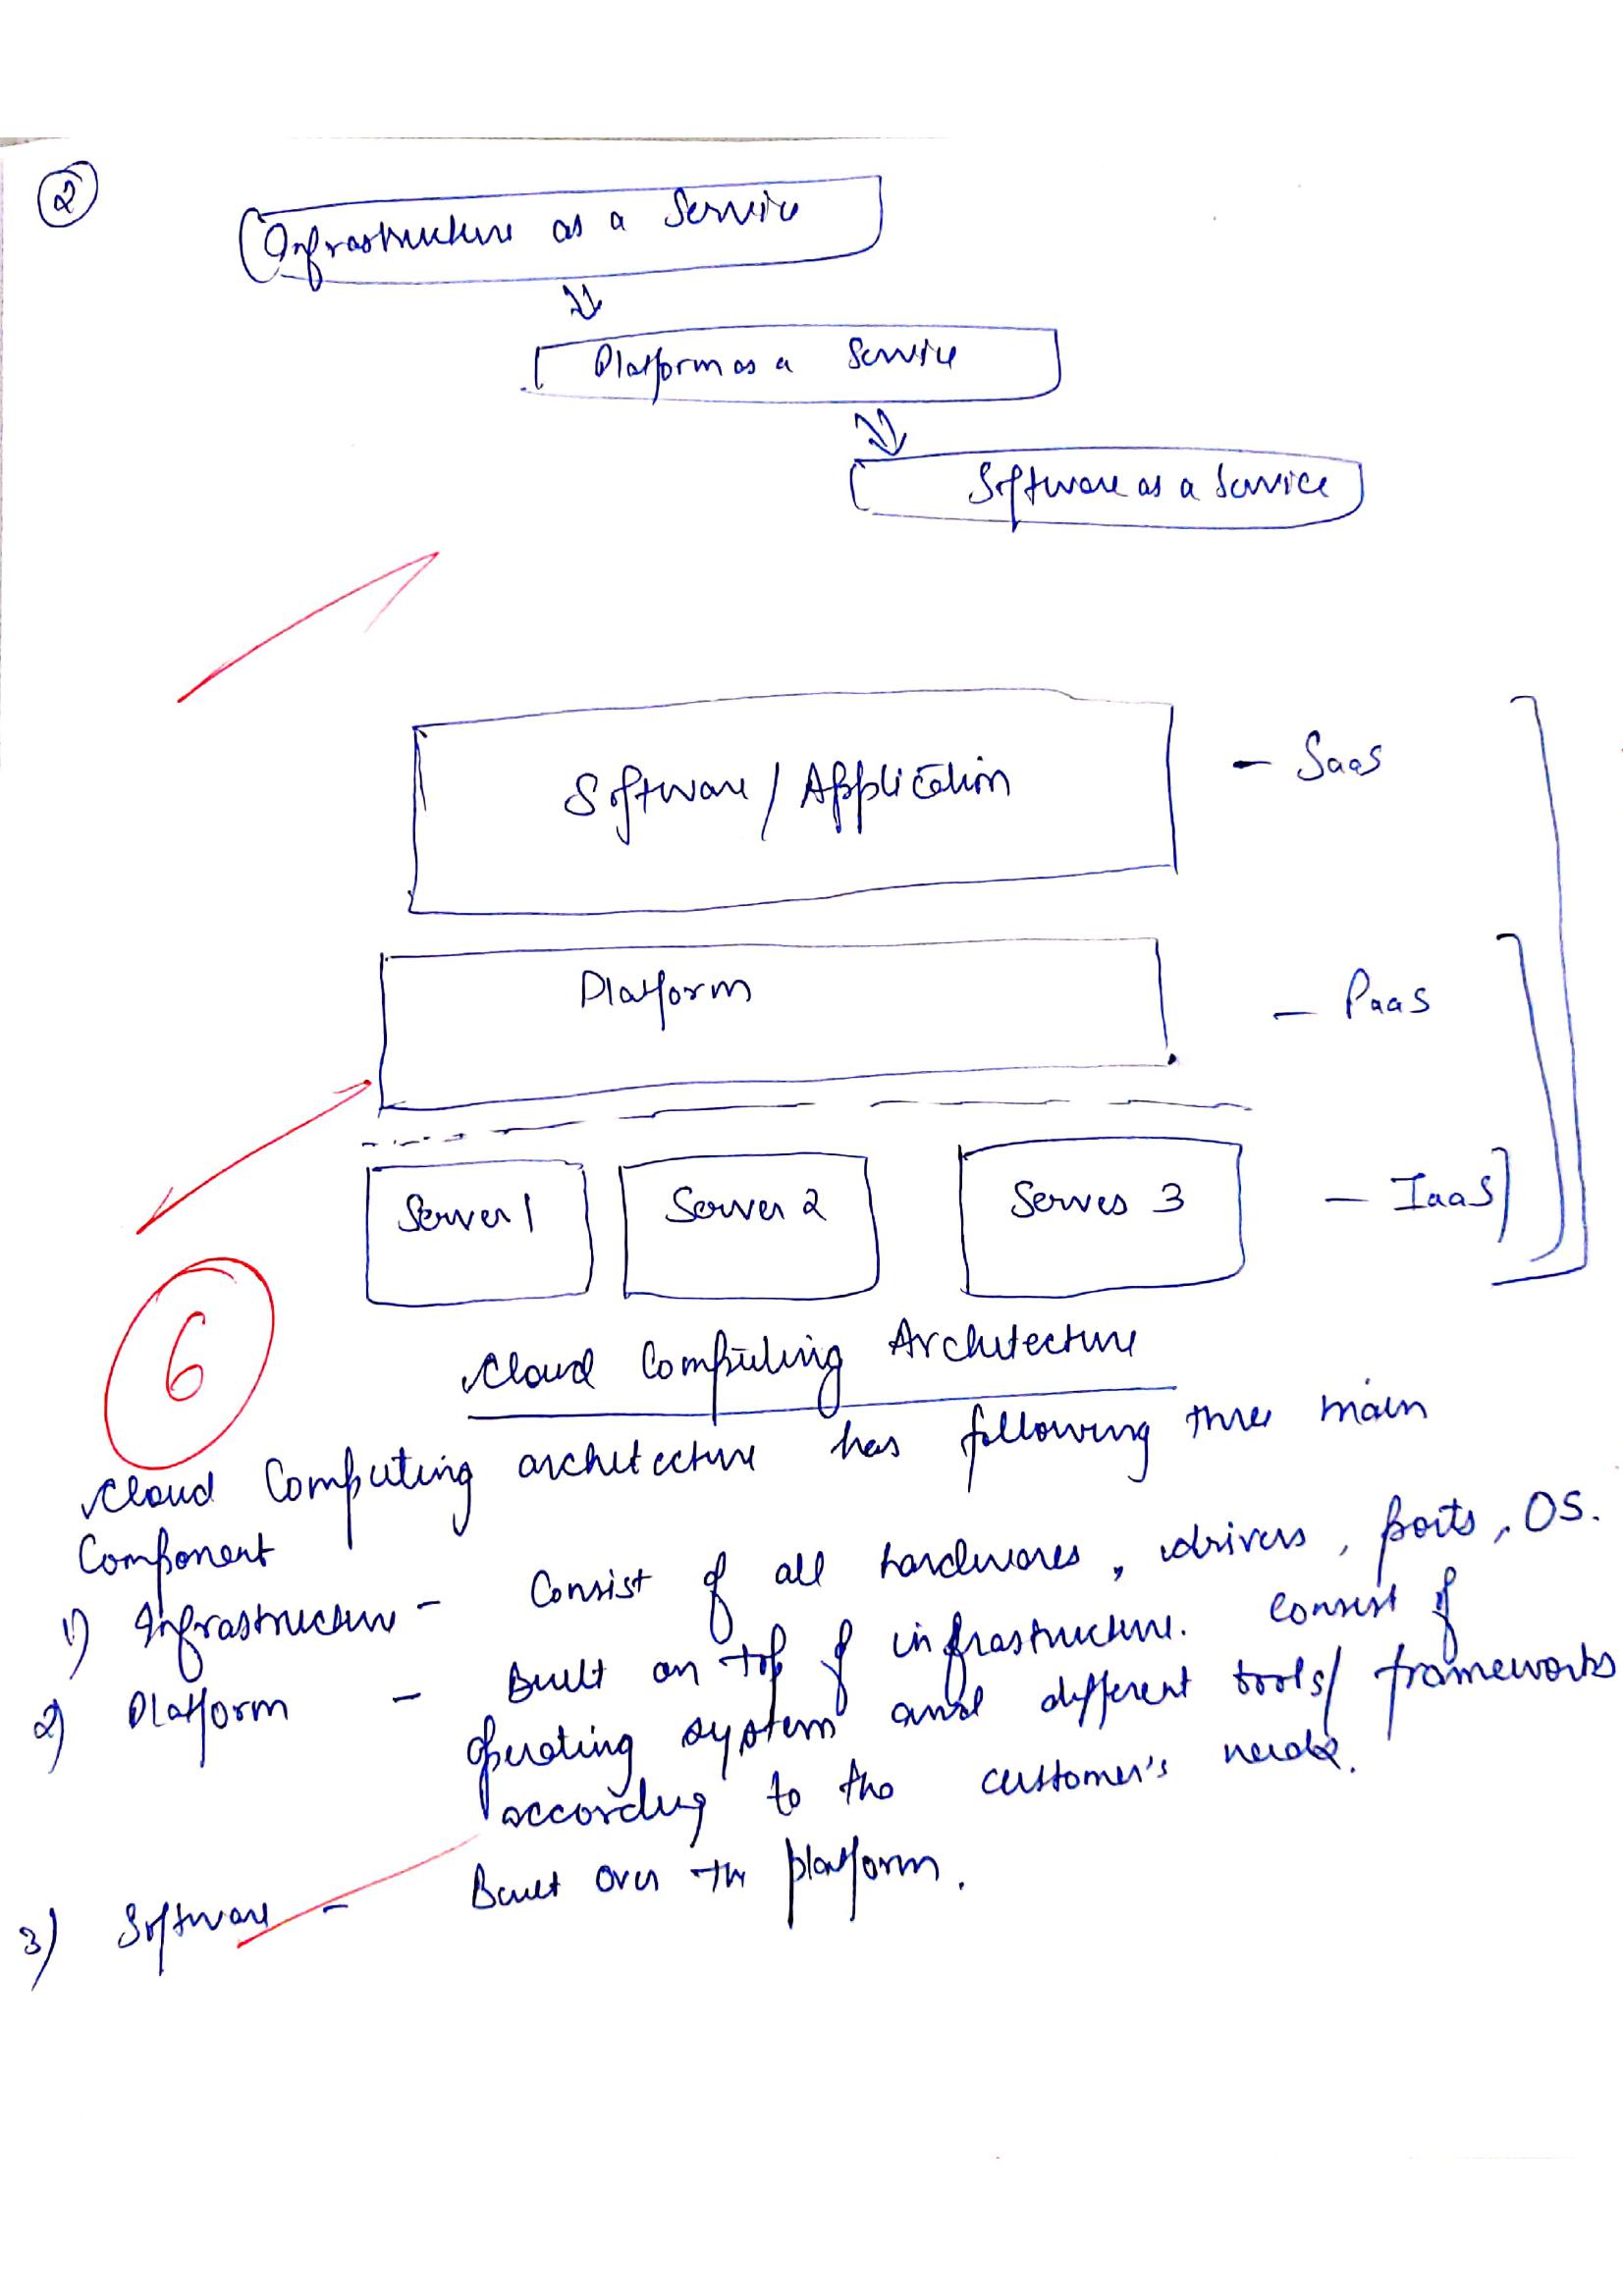 2
Infrastructure as a Service
Platform as a Service
Software as a Service
Software / Application - SaaS
Platform - PaaS
Server 1 Server 2 Serves 3 - IaaS
6
Cloud Computing Architecture
Cloud Computing architecture has following three main
Component
1) Infrastructure - Consist of all hardwares, drivers, ports, OS.
2) Platform - Built on top of infrastructure. Consist of
operating system and different tools/ frameworks
according to the customer's needs.
3) Software - Built over the platform.